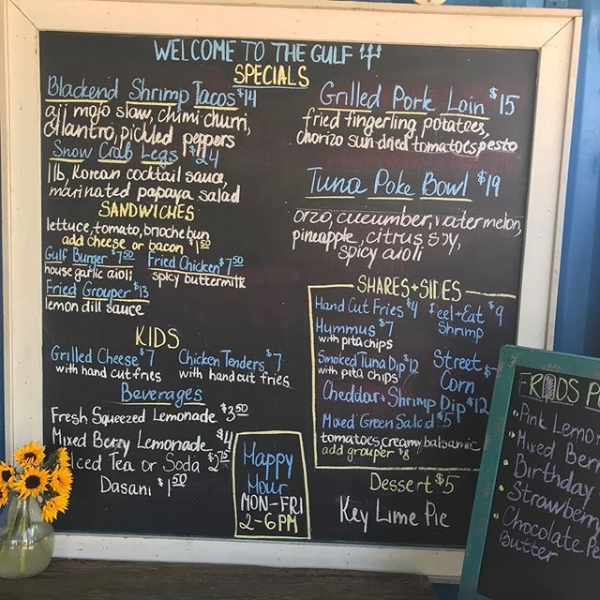 WELCOME TO THE GULF
SPECIALS
Blackend Shrimp Tacos $14
aji mojo slaw, chimi churri,
cilantro, pickled peppers
Snow Crab Legs $24
1lb, Korean cocktail sauce
marinated papaya salad
Grilled Pork Loin $15
fried fingerling potatoes,
chorizo sun-dried tomatoes pesto
Tuna Poke Bowl $19
orzo, cucumber, watermelon,
pineapple, citrus soy,
spicy aioli
SANDWICHES
lettuce, tomato, brioche bun
add cheese or bacon $1.50
Gulf Burger $7.50
house garlic aioli
Fried Chicken $7.50
spicy buttermilk
Fried Grouper $13
lemon dill sauce
KIDS
Grilled Cheese $7
with hand cut fries
Chicken Tenders $7
with hand cut fries
Beverages
Fresh Squeezed Lemonade $3.50
Mixed Berry Lemonade $4
Iced Tea or Soda $2.75
Dasani $1.50
Happy
Hour
MON-FRI
2-6PM
SHARES + SIDES
Hand Cut Fries $4
Hummus $7
with pita chips
Smoked Tuna Dip $12
with pita chips
Peel+Eat $9
Shrimp
Street
Corn
Cheddar + Shrimp Dip $12
Mixed Green Salad $5
tomatoes, creamy balsamic
add grouper $8
Dessert $5
Key Lime Pie
Pink Lemon
Mixed Berr
Birthday
Strawberry
Chocolate Pe
Butter